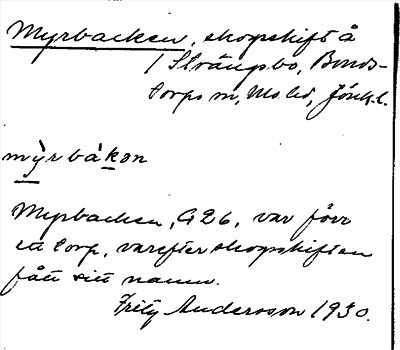 Myrbacken, skogskift å
1 Strängsbo, Bonds-
torps sn, Mo hd, Jönk. l.
mỳrbàkən
Myrbacken, G26, var förr
ett torp, varefter skogskiften
fått sitt namn.
Fritz Andersson 1930.